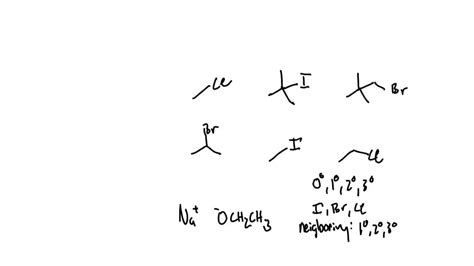 Cl
I
Br
Br
I
Cl
0°, 1°, 2°, 3°
I, Br, Cl
Na⁺ ⁻OCH₂CH₃
neigboring: 1°, 2°, 3°